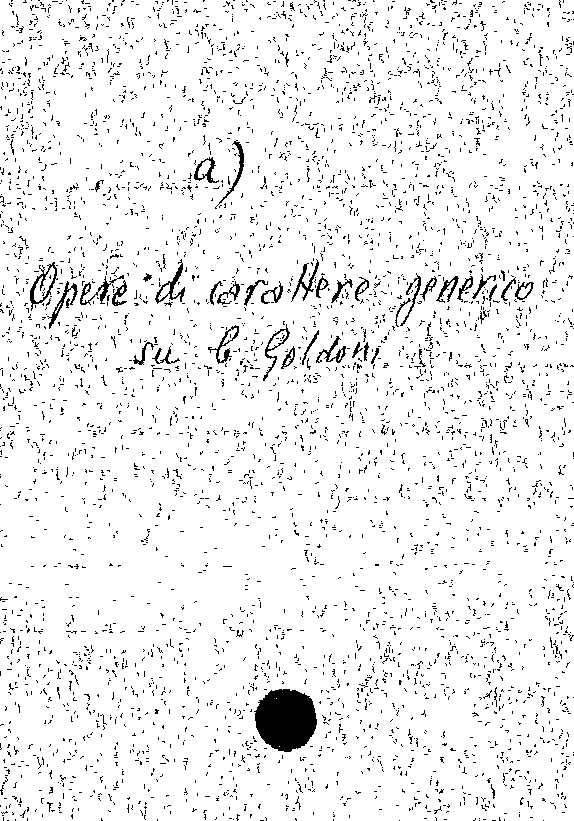 a)
Opere di carattere generico
su C. Goldoni